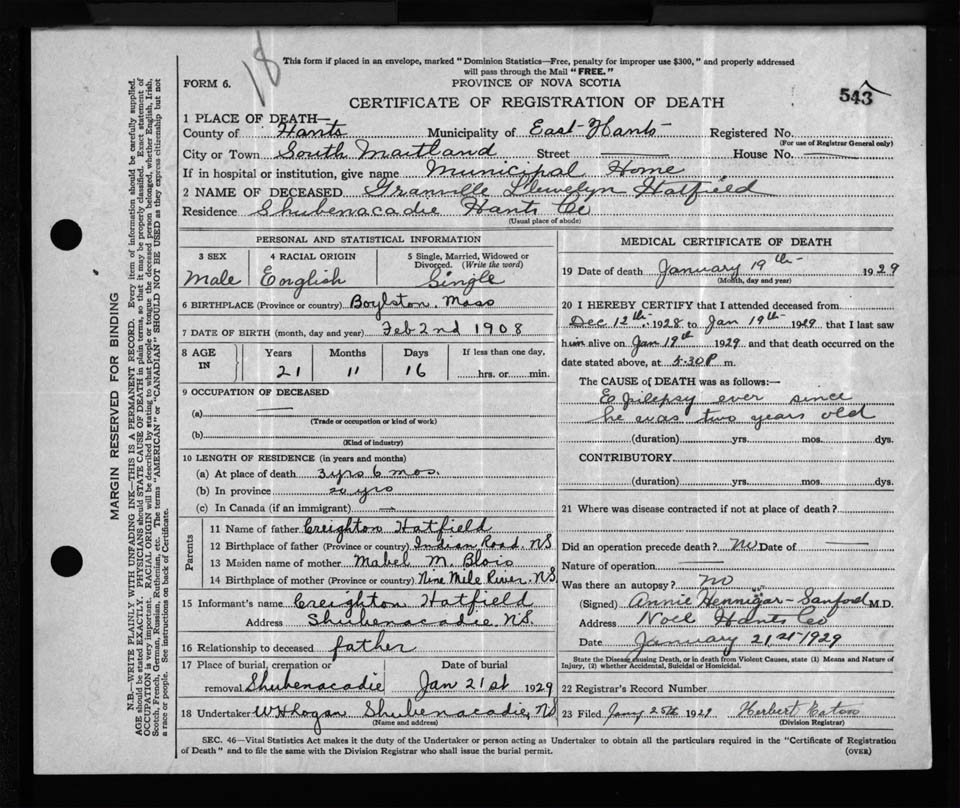 18
This form if placed in an envelope, marked "Dominion Statistics—Free, penalty for improper use $300," and properly addressed
will pass through the Mail "FREE."
FORM 6. PROVINCE OF NOVA SCOTIA
CERTIFICATE OF REGISTRATION OF DEATH 543
1 PLACE OF DEATH—
County of Hants Municipality of East-Hants Registered No.
(For use of Registrar General only)
City or Town South Maitland Street — House No. —
If in hospital or institution, give name Municipal Home
2 NAME OF DECEASED Granville Llewelyn Hatfield
Residence Shubenacadie Hants Co
(Usual place of abode)
PERSONAL AND STATISTICAL INFORMATION
3 SEX 4 RACIAL ORIGIN 5 Single, Married, Widowed or
Divorced. (Write the word)
Male English Single
6 BIRTHPLACE (Province or country) Boylston. Mass
7 DATE OF BIRTH (month, day and year) Feb 2nd 1908
8 AGE IN Years Months Days If less than one day,
21 11 16 hrs. or min.
9 OCCUPATION OF DECEASED
(a) —
(Trade or occupation or kind of work)
(b)
(Kind of industry)
10 LENGTH OF RESIDENCE (in years and months)
(a) At place of death 3 yrs 6 mos.
(b) In province 20 yrs
(c) In Canada (if an immigrant) —
Parents
11 Name of father Creighton Hatfield
12 Birthplace of father (Province or country) Indian Road. NS
13 Maiden name of mother Mabel M. Blois
14 Birthplace of mother (Province or country) Nine Mile River. NS
15 Informant's name Creighton Hatfield
Address Shubenacadie. N.S.
16 Relationship to deceased father
17 Place of burial, cremation or Date of burial
removal Shubenacadie Jan 21st 1929
18 Undertaker W H Logan Shubenacadie, NS
(Name and address)
MEDICAL CERTIFICATE OF DEATH
19 Date of death January 19th 1929
(Month, day and year)
20 I HEREBY CERTIFY that I attended deceased from
Dec 12th 1928 to Jan 19th 1929 that I last saw
him alive on Jan 19th 1929 and that death occurred on the
date stated above, at 5.30 P m.
The CAUSE of DEATH was as follows:—
Epilepsy ever since
he was two years old
(duration) yrs. mos. dys.
CONTRIBUTORY
(duration) yrs. mos. dys.
21 Where was disease contracted if not at place of death?
Did an operation precede death? No Date of —
Nature of operation —
Was there an autopsy? no
(Signed) Annie Hennigar-Sanford M.D.
Address Noel Hants Co
Date January 21st 1929
State the Disease causing Death, or in death from Violent Causes, state (1) Means and Nature of
Injury, (2) whether Accidental, Suicidal or Homicidal.
22 Registrar's Record Number
23 Filed Jany 25th 1929 Herbert Eaton
(Division Registrar)
SEC. 46—Vital Statistics Act makes it the duty of the Undertaker or person acting as Undertaker to obtain all the particulars required in the "Certificate of Registration
of Death" and to file the same with the Division Registrar who shall issue the burial permit. (OVER)
MARGIN RESERVED FOR BINDING
N.B.—WRITE PLAINLY, WITH UNFADING INK—THIS IS A PERMANENT RECORD. Every item of information should be carefully supplied.
AGE should be stated EXACTLY. PHYSICIANS should STATE CAUSE OF DEATH in plain terms, so that it may be properly classified. Exact statement of
OCCUPATION is very important. RACIAL ORIGIN will be described by stating to what people or tongue the deceased person belonged, whether English, Irish,
Scotch, French, German, Russian, Ruthenian, etc. The terms "AMERICAN" or "CANADIAN" SHOULD NOT BE USED as they express citizenship but not
a race or people. See instructions on back of Certificate.